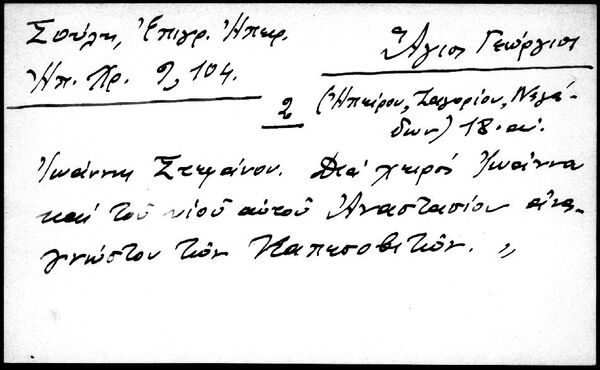 Σούλη, Ἐπιγρ. Ἠπειρ.
Ἠπ. Χρ. 9, 104.
Ἅγιος Γεώργιος
2
(Ἠπείρου, Ζαγορίου, Νεγά-
δων) 18. αἰ.
Ἰωάννη Στεφάνου. Διά χειρός Ἰωάννου
καί τοῦ υἱοῦ αὐτοῦ Ἀναστασίου ἀνα-
γνώστου τῶν Καπεσοβιτῶν. „